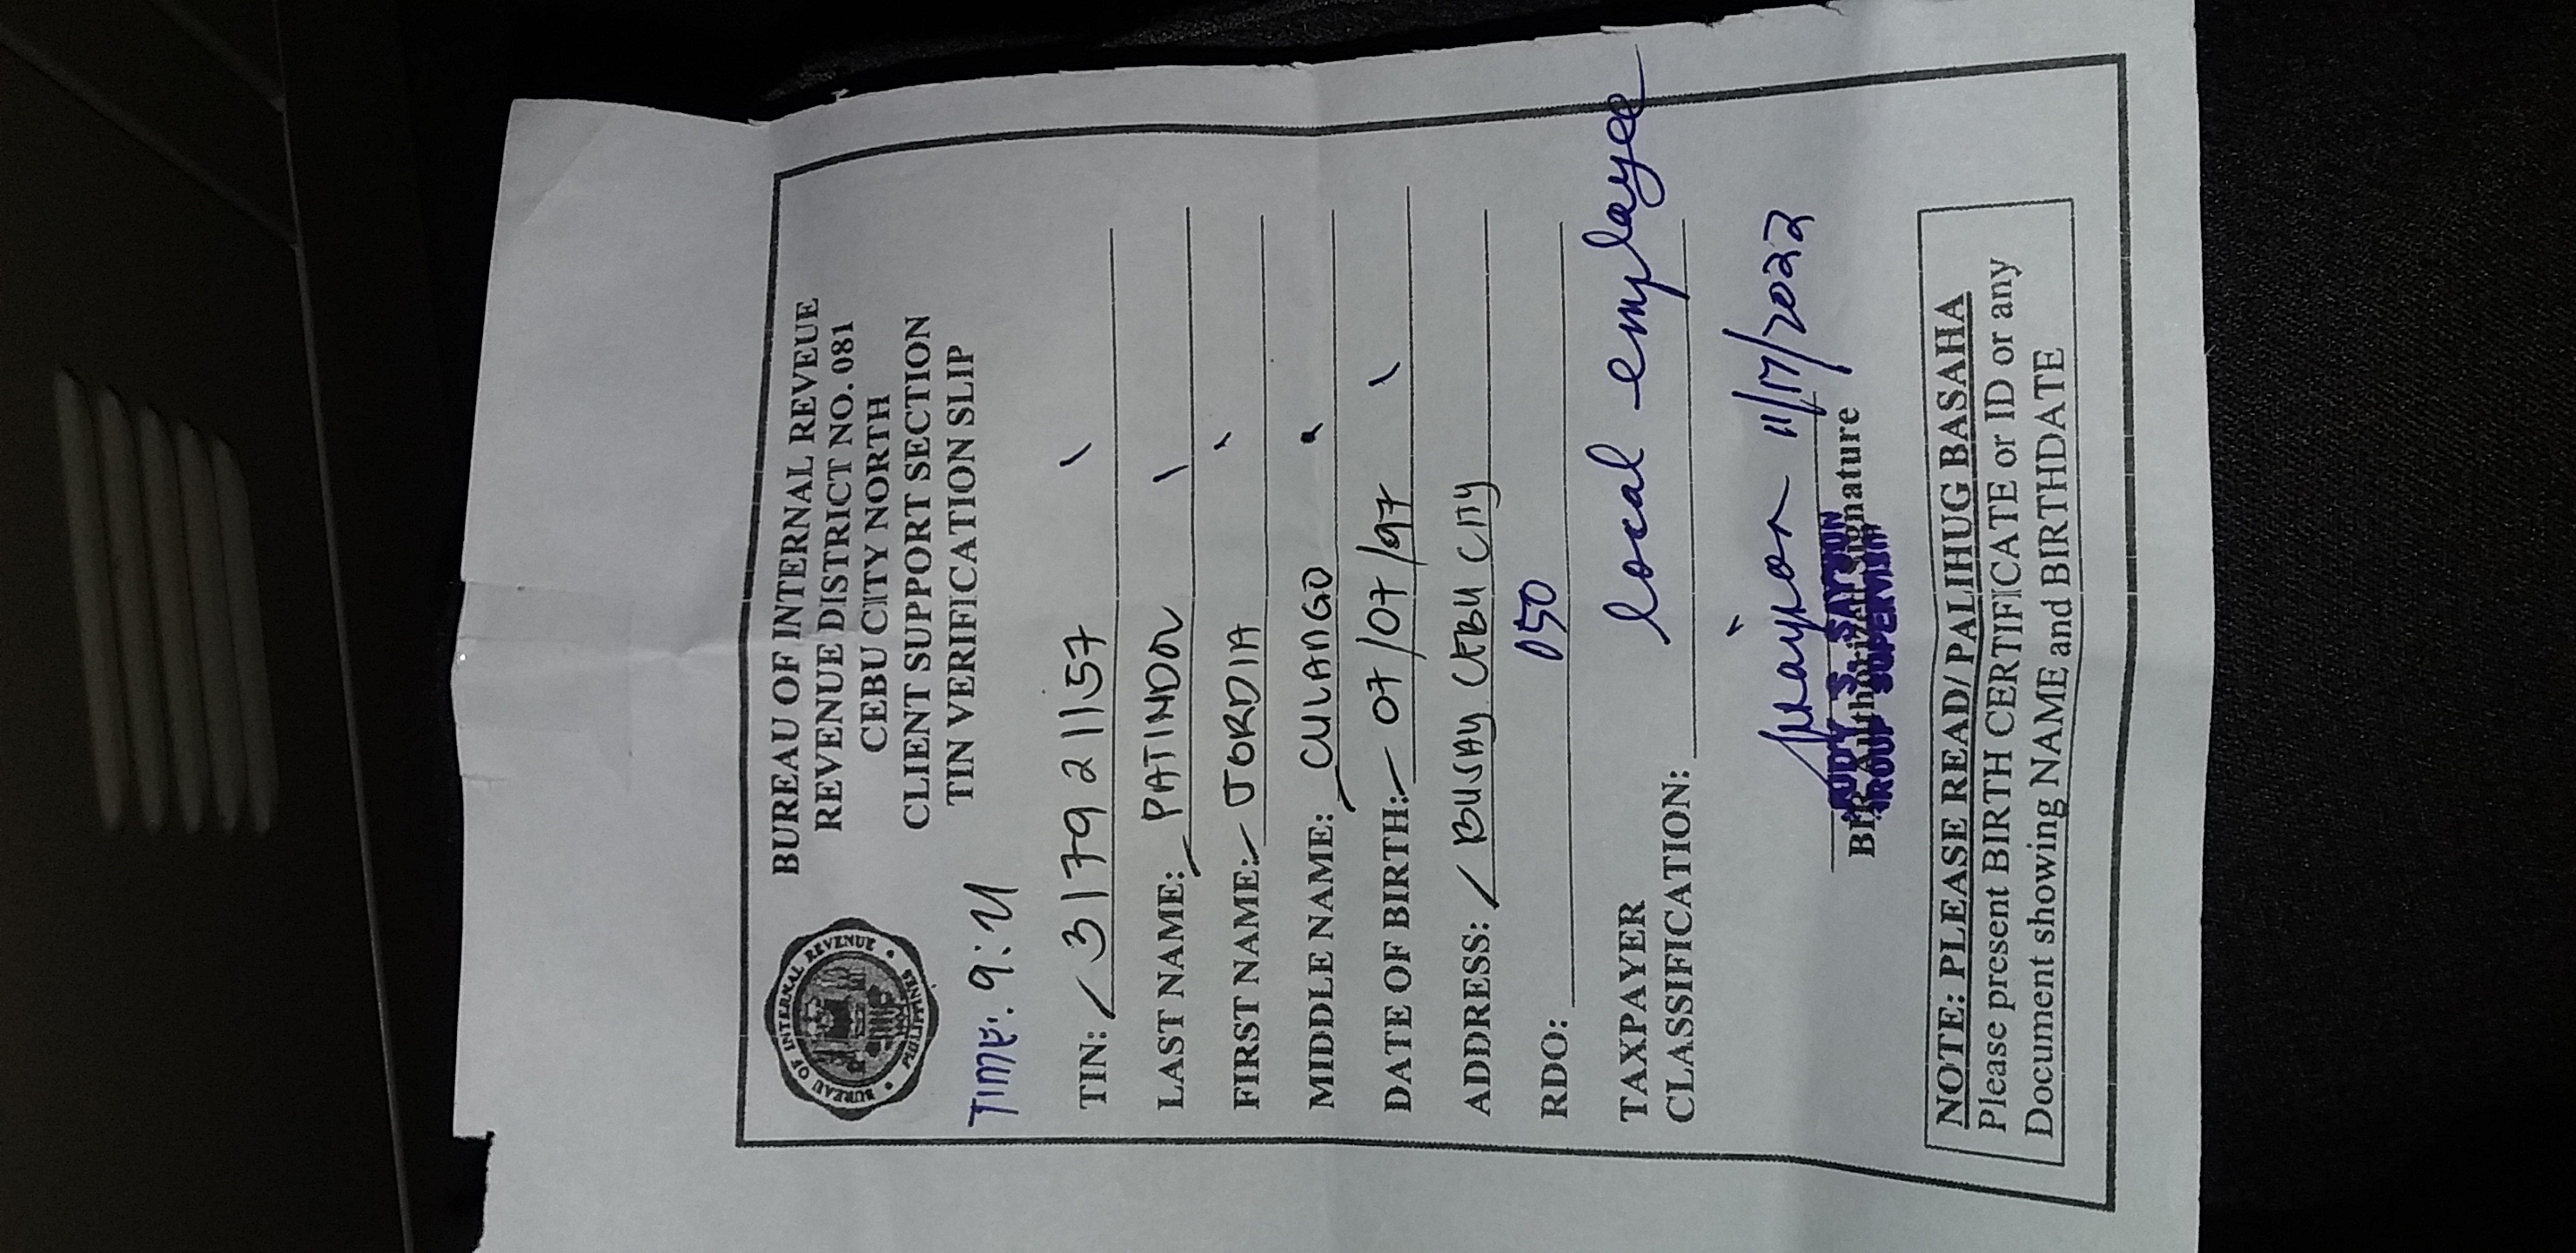 BUREAU OF INTERNAL REVEUE
REVENUE DISTRICT NO. 081
CEBU CITY NORTH
CLIENT SUPPORT SECTION
TIN VERIFICATION SLIP
BUREAU OF INTERNAL REVENUE
PHILIPPINES
TIME: 9:21
TIN: 317921157
LAST NAME: PATINDOL
FIRST NAME: JORDIA
MIDDLE NAME: CULANGO
DATE OF BIRTH: 07/07/97
ADDRESS: BUSAY CEBU CITY
RDO: 050
TAXPAYER
CLASSIFICATION: local employee
11/17/2022
S. SAYSON
BIR Authorized Signature
GROUP SUPERVISOR
NOTE: PLEASE READ/ PALIHUG BASAHA
Please present BIRTH CERTIFICATE or ID or any
Document showing NAME and BIRTHDATE